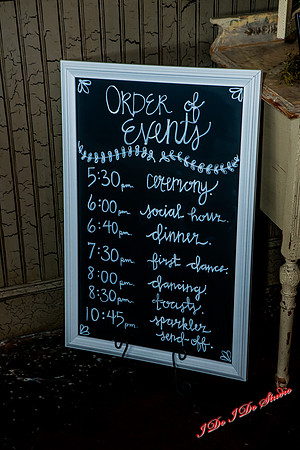 ORDER of
Events
5:30pm ceremony.
6:00pm social hour.
6:40pm dinner.
7:30pm first dance.
8:00pm dancing
8:30pm toasts.
10:45pm sparkler
send-off.
I Do I Do Studio